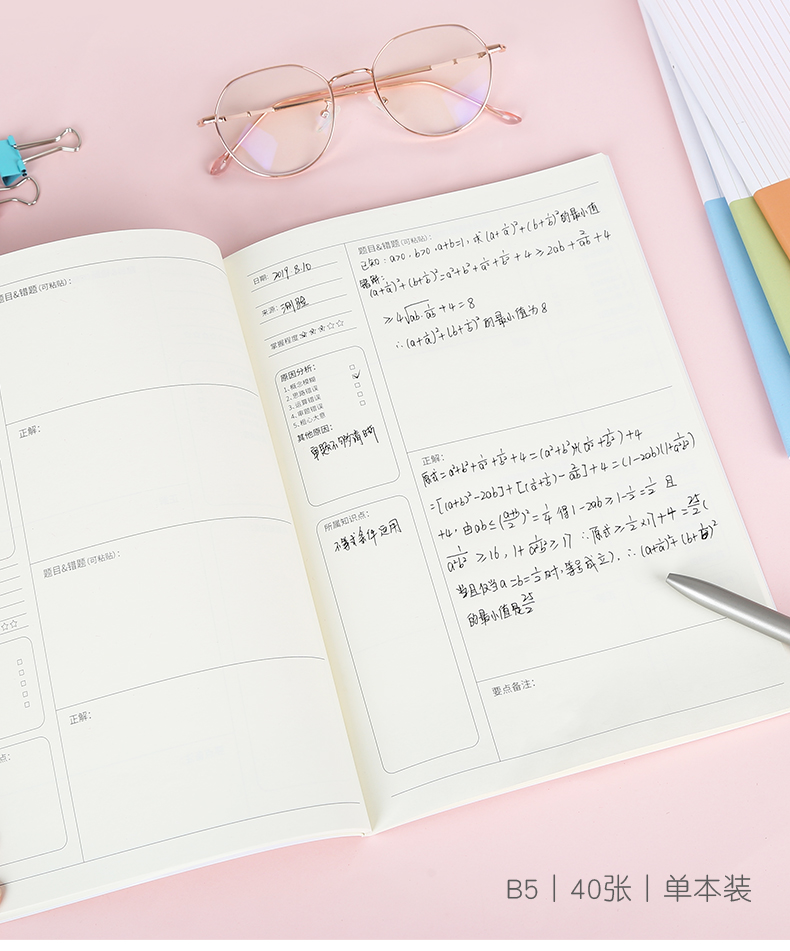 题目&错题(可粘贴):
正解:
题目&错题(可粘贴):
正解:
点:
日期: 2019.8.10
来源: 测验
掌握程度 ★★★☆☆
原因分析:
1.概念模糊
2.思路错误
3.运算错误
4.审题错误
5.粗心大意
其他原因:
审题不够清晰
所属知识点:
不等式条件运用
题目&错题(可粘贴):
已知: a>0, b>0, a+b=1, 求(a+1/a)²+(b+1/b)²的最小值
错解:
(a+1/a)²+(b+1/b)²=a²+b²+1/a²+1/b²+4≥2ab+2/ab+4
≥4√ab·1/ab+4=8
∴(a+1/a)²+(b+1/b)²的最小值为8
正解:
原式=a²+b²+1/a²+1/b²+4=(a²+b²)+(1/a²+1/b²)+4
=[(a+b)²-2ab]+[(1/a+1/b)²-2/ab]+4=(1-2ab)(1+1/a²b²)
+4, 由ab≤(a+b/2)²=1/4 得1-2ab≥1-1/2=1/2 且
1/a²b²≥16, 1+1/a²b²≥17 ∴原式≥1/2×17+4=25/2(
当且仅当a=b=1/2时,等号成立). ∴(a+1/a)²+(b+1/b)²
的最小值是25/2
要点备注:
B5|40张|单本装